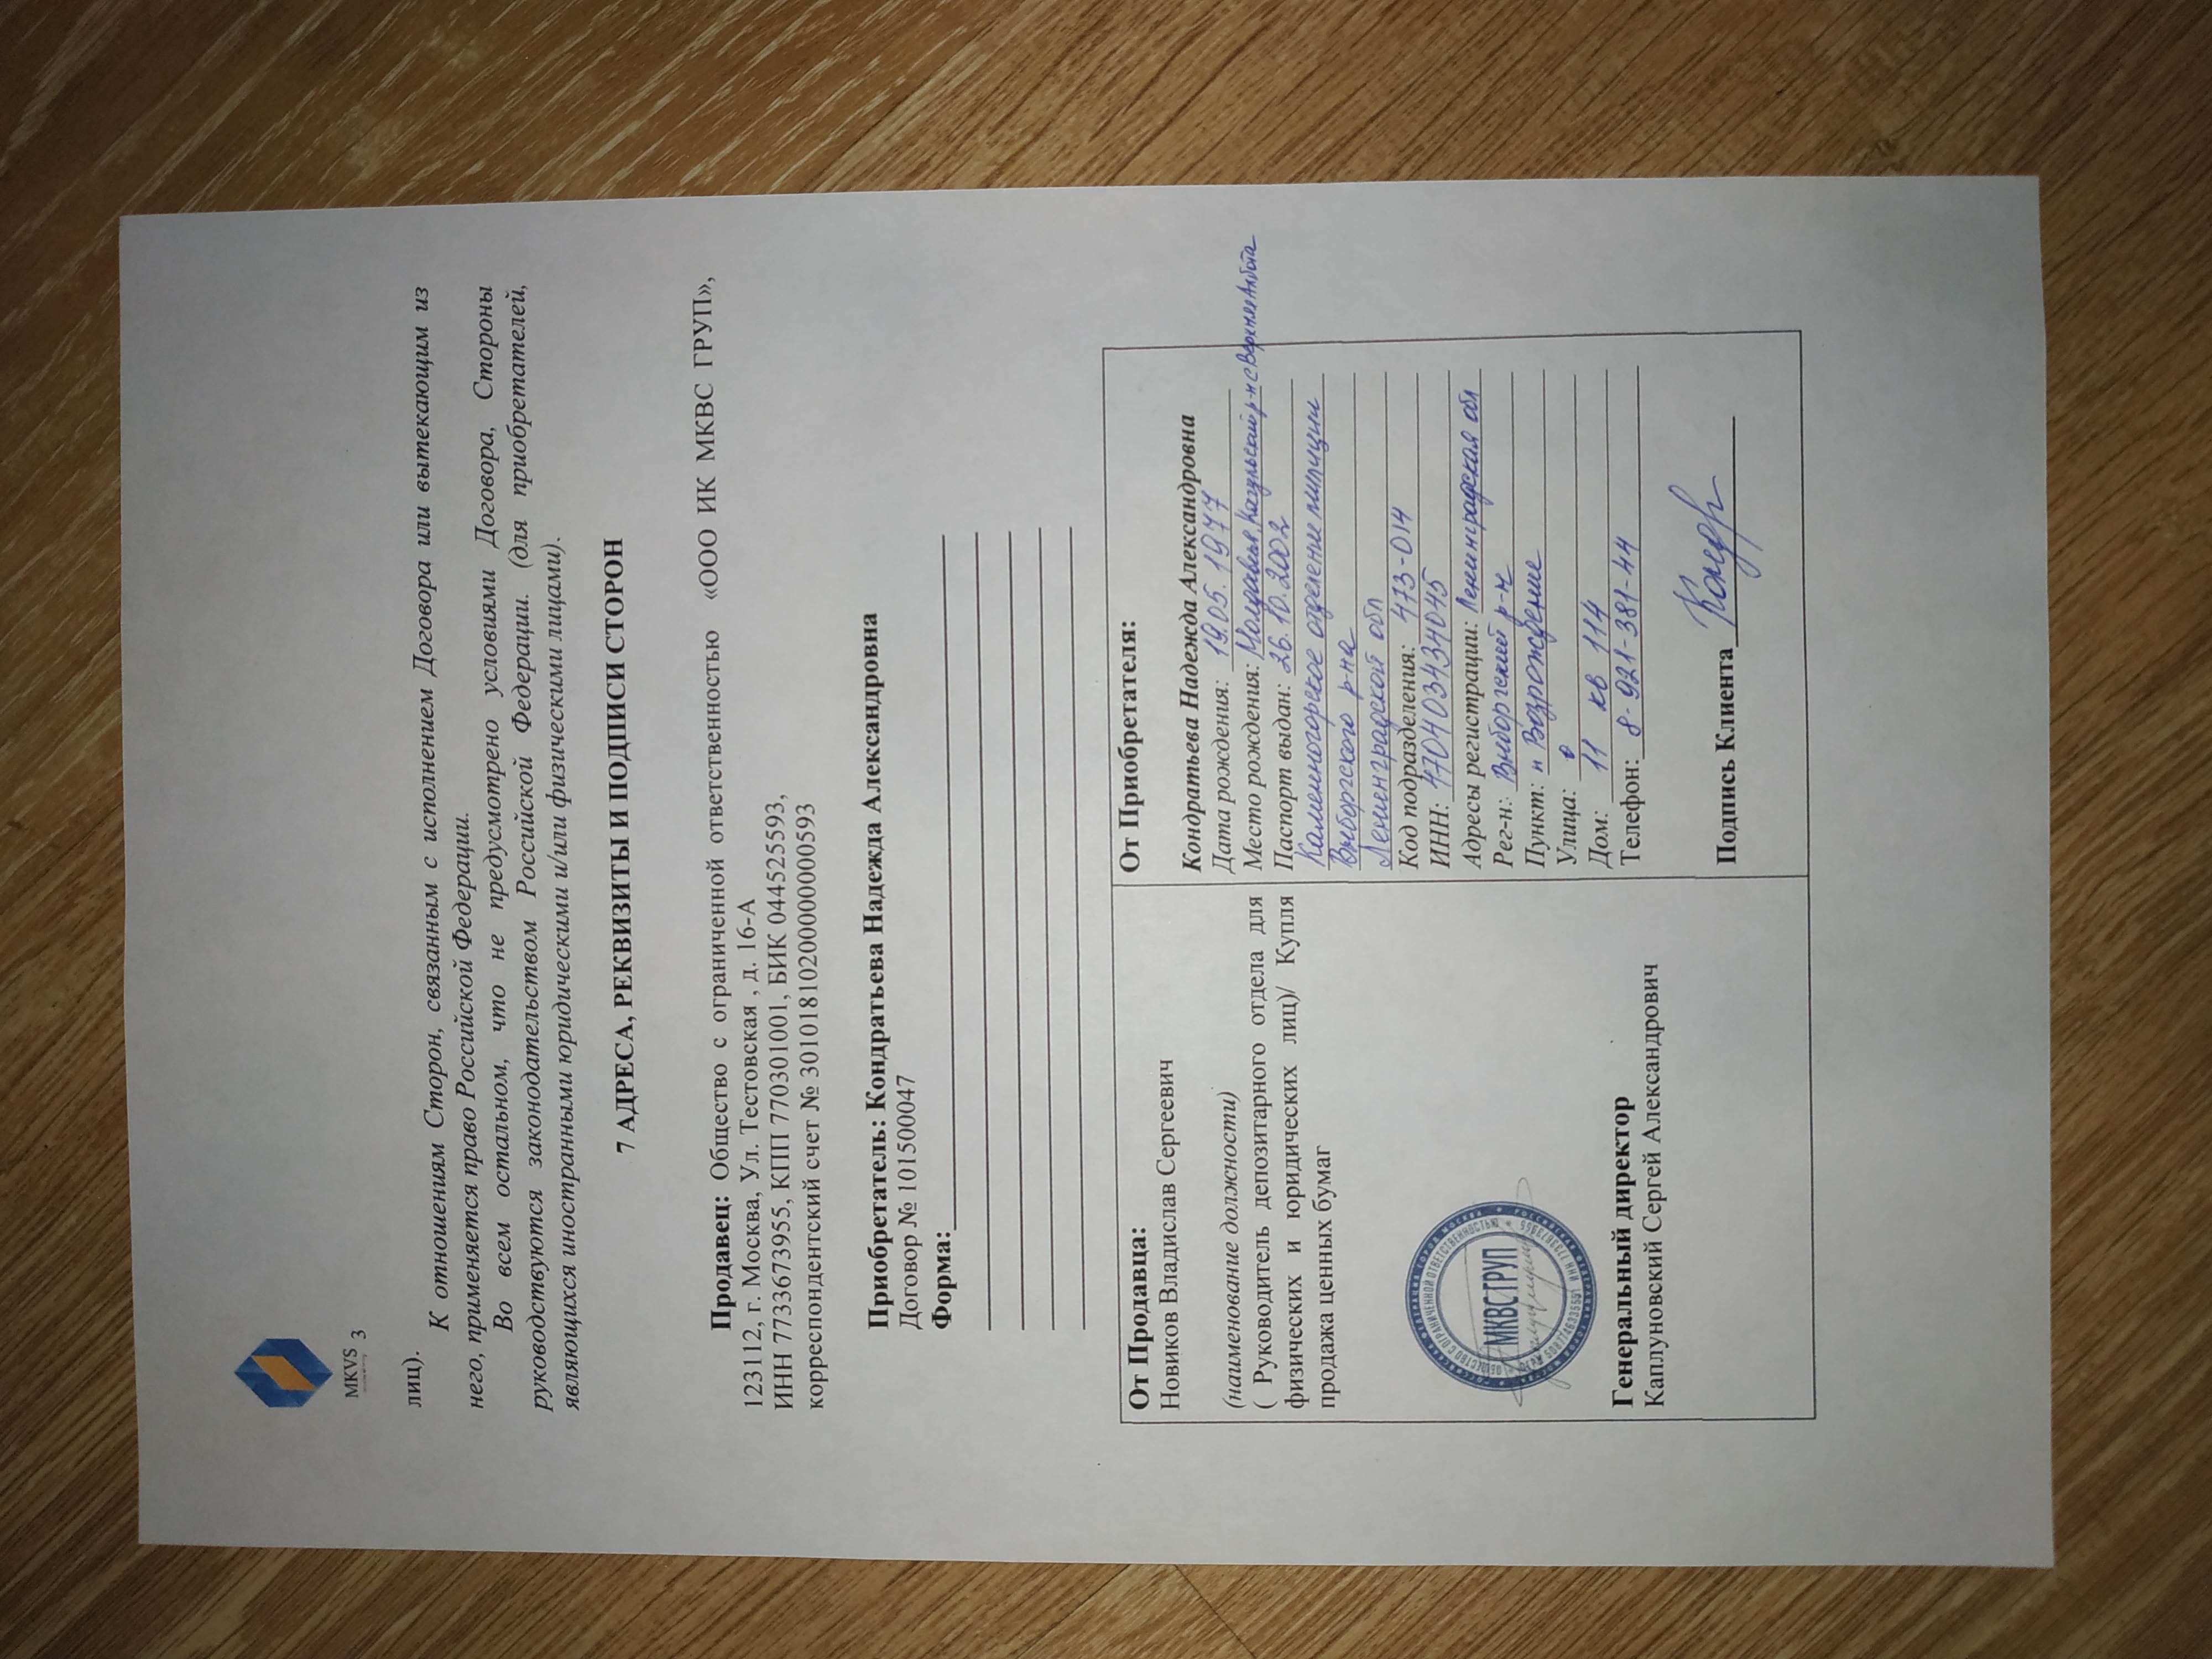 MKVS 3
лиц).
К отношениям Сторон, связанным с исполнением Договора или вытекающим из
него, применяется право Российской Федерации.
Во всем остальном, что не предусмотрено условиями Договора, Стороны
руководствуются законодательством Российской Федерации. (для приобретателей,
являющихся иностранными юридическими и/или физическими лицами).
7 АДРЕСА, РЕКВИЗИТЫ И ПОДПИСИ СТОРОН
Продавец: Общество с ограниченной ответственностью «ООО ИК МКВС ГРУП»,
123112, г. Москва, Ул. Тестовская , д. 16-А
ИНН 7733673955, КПП 770301001, БИК 044525593,
корреспондентский счет № 30101810200000000593
Приобретатель: Кондратьева Надежда Александровна
Договор № 101500047
Форма:
От Продавца:
Новиков Владислав Сергеевич
(наименование должности)
( Руководитель депозитарного отдела для
физических и юридических лиц)/ Купля
продажа ценных бумаг
МКВС ГРУП
ОБЩЕСТВО С ОГРАНИЧЕННОЙ ОТВЕТСТВЕННОСТЬЮ
Генеральный директор
Каплуновский Сергей Александрович
От Приобретателя:
Кондратьева Надежда Александровна
Дата рождения: 19.05.1977
Место рождения: Молдавия, Кагульский р-н с Верхняя Албота
Паспорт выдан: 26.10.2002
Каменногорское отделение милиции
Выборгского р-на
Ленинградской обл
Код подразделения: 473-014
ИНН: 470403434045
Адресы регистрации: Ленинградская обл
Рег-н: Выборгский р-н
Пункт: п Возрождение
Улица:
Дом: 11 кв 114
Телефон: 8-921-381-44
Подпись Клиента Кондр